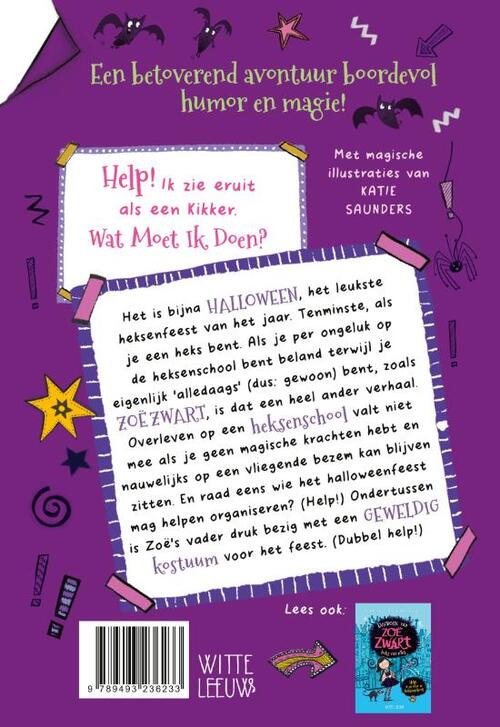 Een betoverend avontuur boordevol
humor en magie!
Met magische
illustraties van
KATIE
SAUNDERS
Help! Ik zie eruit
als een kikker.
Wat Moet Ik Doen?
Het is bijna HALLOWEEN, het leukste
heksenfeest van het jaar. Tenminste, als
je een heks bent. Als je per ongeluk op
de heksenschool bent beland terwijl je
eigenlijk 'alledaags' (dus: gewoon) bent, zoals
ZOË ZWART, is dat een heel ander verhaal.
Overleven op een heksenschool valt niet
mee als je geen magische krachten hebt en
nauwelijks op een vliegende bezem kan blijven
zitten. En raad eens wie het halloweenfeest
mag helpen organiseren? (Help!) Ondertussen
is Zoë's vader druk bezig met een GEWELDIG
kostuum voor het feest. (Dubbel help!)
Lees ook:
ZOË
ZWART
9 789493 236233
WITTE
LEEUW